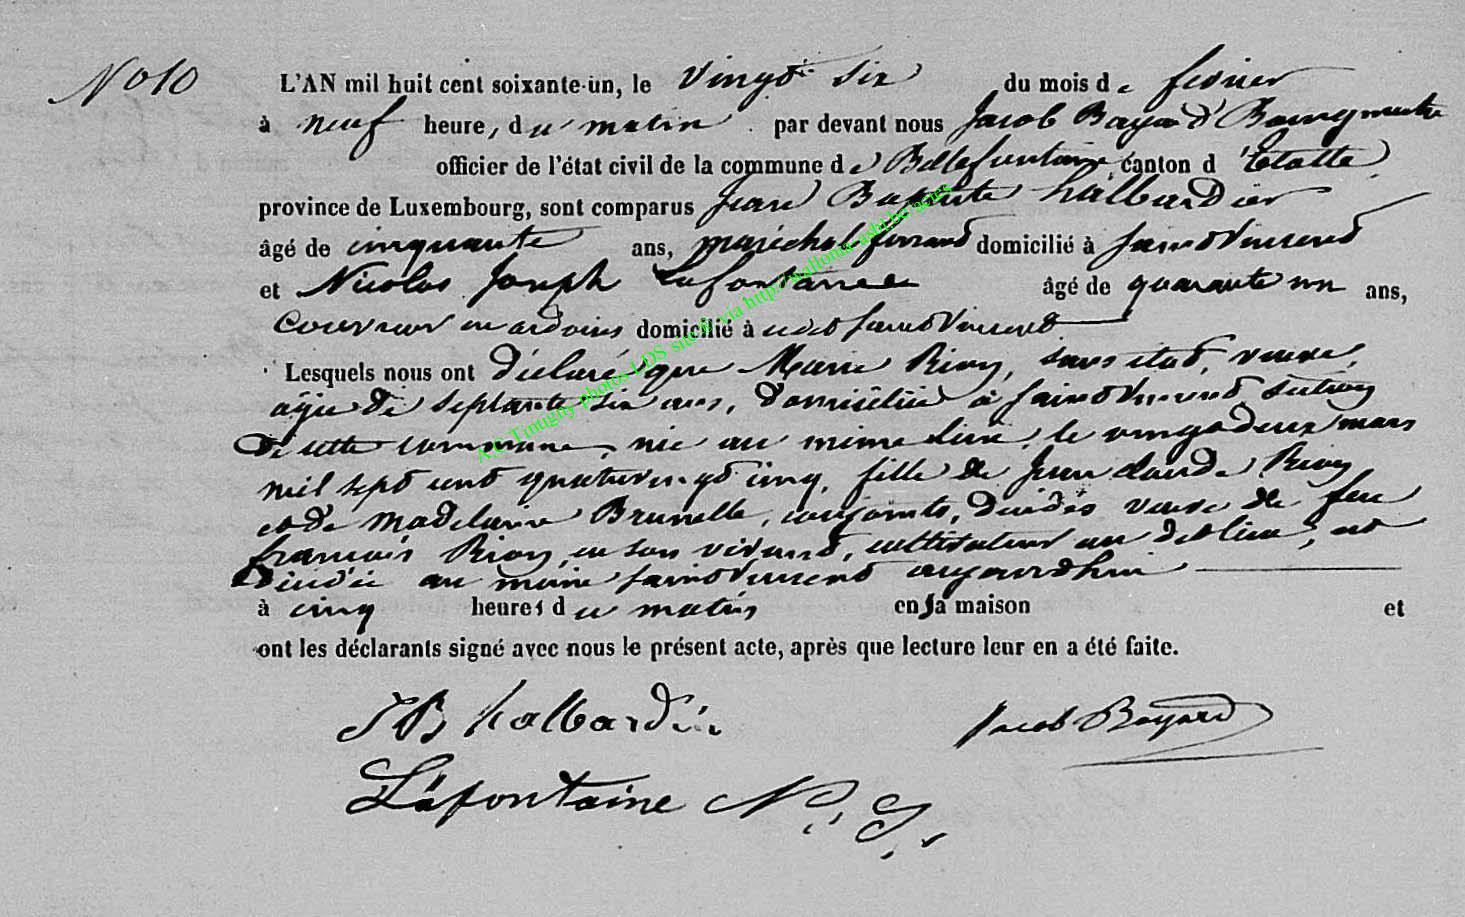 No 10
L'AN mil huit cent soixante-un, le vingt six du mois de fevrier
à neuf heures, du matin par devant nous Jacob Bayard Bourgmestre
officier de l'état civil de la commune de Bellefontaine, canton d'Etalle
province de Luxembourg, sont comparus Jean Baptiste halbardier
âgé de cinquante ans, maréchal ferrand domicilié à saint Vincent
et Nicolas Joseph Lafontaine âgé de quarante un ans,
couvreur en ardoises domicilié à saint Vincent
Lesquels nous ont déclaré que Marie Rion, sans état, veuve,
agée de septante six ans, domiciliée à saint Vincent, section
de cette commune, née au même lieu, le vingt deux mars
mil sept cent quatre vingt cinq, fille de Jean Claude Rion
et de Madelaine Brunelle, conjoints, décédés veuve de feu
francois Rion, en son vivant, cultivateur au dit lieu, est
décédée au même saint Vincent aujourdhui
à cinq heures du matin en sa maison et
ont les déclarants signé avec nous le présent acte, après que lecture leur en a été faite.
JB halbardier Jacob Bayard
Lafontaine N. J.
A.C. Tintigny photos LDS site © via http://wallonia-asbl.be/actes